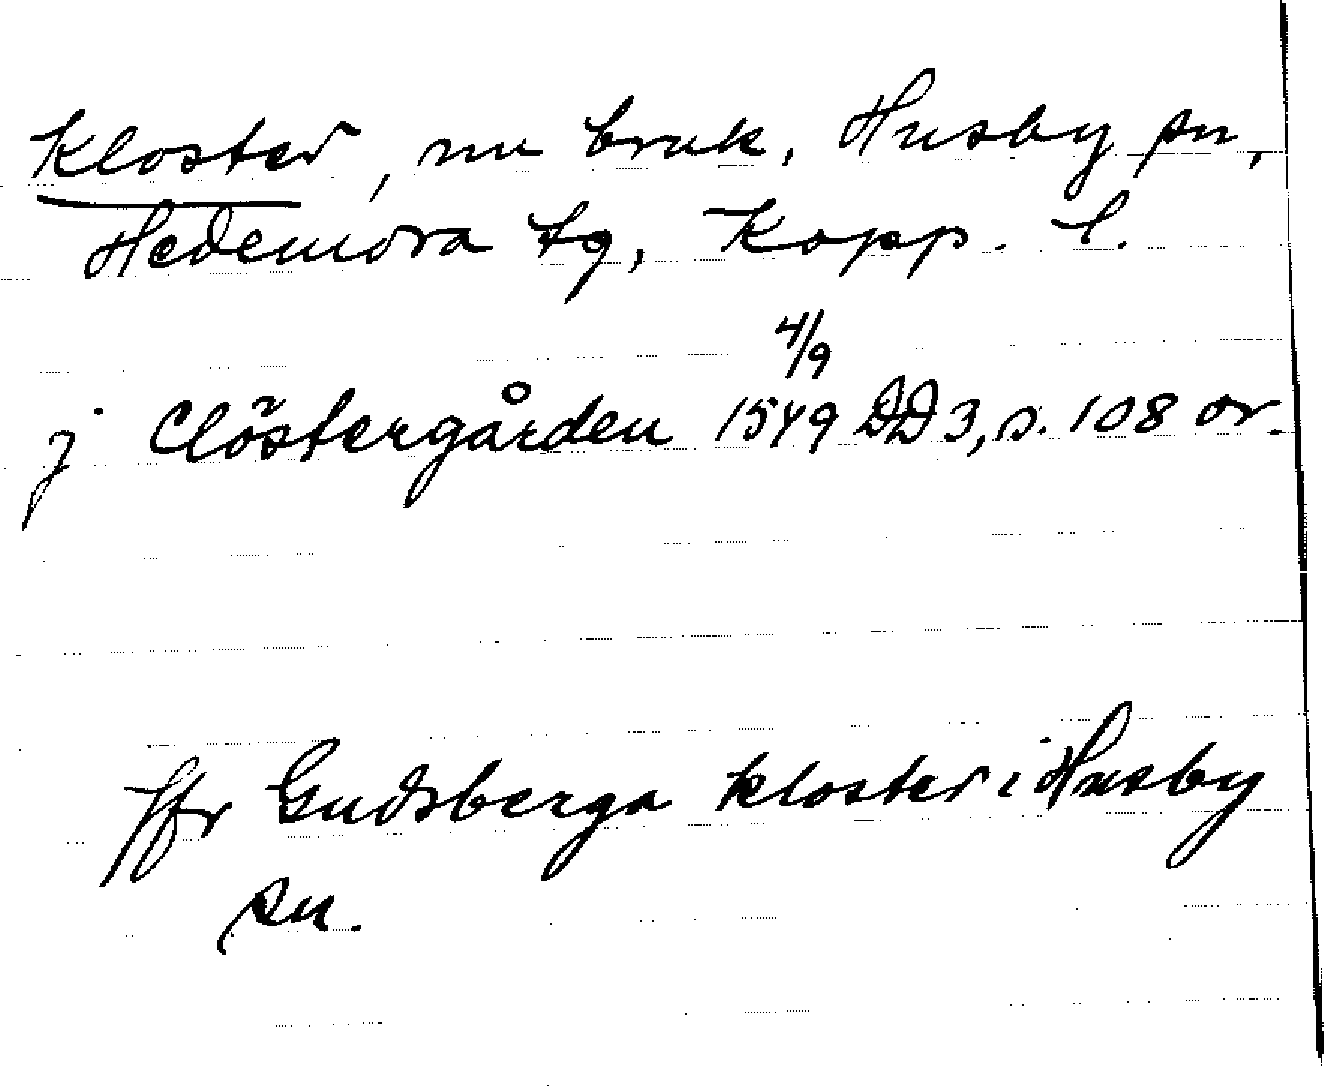 Kloster, nu bruk, Husby sn,
Hedemora tg, Kopp. l.
4/9
j Clöstergården 1549 DD 3, s. 108 or.
Jfr Gudsberga kloster i Husby
sn.